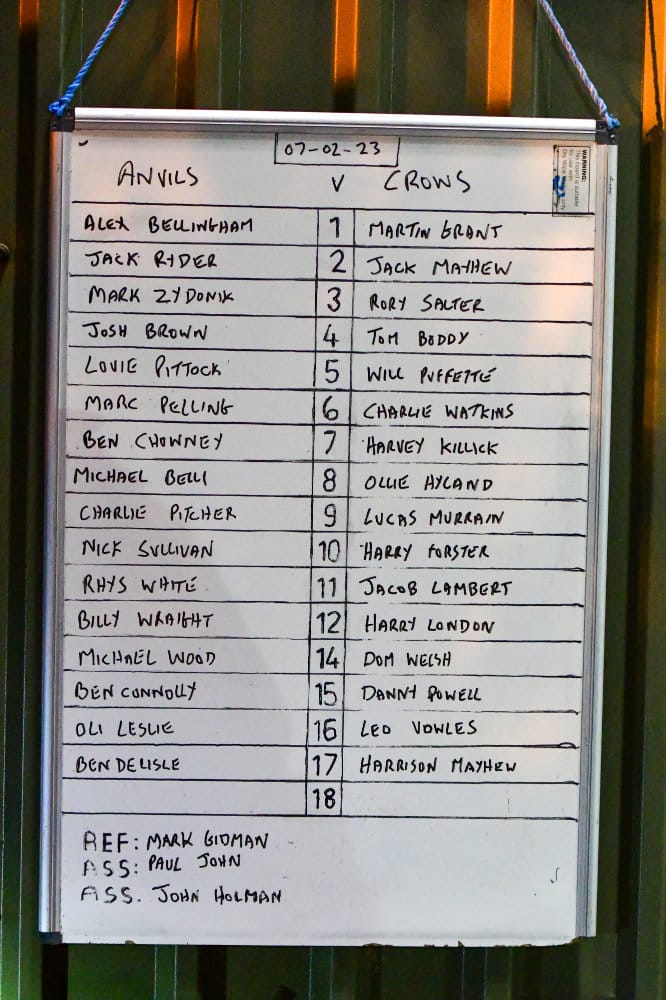 07-02-23
ANVILS V CROWS
ALEX BELLINGHAM 1 MARTIN GRANT
JACK RYDER 2 JACK MAYHEW
MARK ZYDONIK 3 RORY SALTER
JOSH BROWN 4 TOM BODDY
LOUIE PITTOCK 5 WILL PUFFETTE
MARC PELLING 6 CHARLIE WATKINS
BEN CHOWNEY 7 HARVEY KILLICK
MICHAEL BELLI 8 OLLIE HYLAND
CHARLIE PITCHER 9 LUCAS MURRAIN
NICK SULLIVAN 10 HARRY FORSTER
RHYS WHITE 11 JACOB LAMBERT
BILLY WRAIGHT 12 HARRY LONDON
MICHAEL WOOD 14 DOM WELSH
BEN CONNOLLY 15 DANNY POWELL
OLI LESLIE 16 LEO VOWLES
BEN DELISLE 17 HARRISON MAYHEW
18
REF: MARK GIDMAN
ASS: PAUL JOHN
ASS. JOHN HOLMAN
WARNING:
This board is suitable
for use with
Dry Wipe only